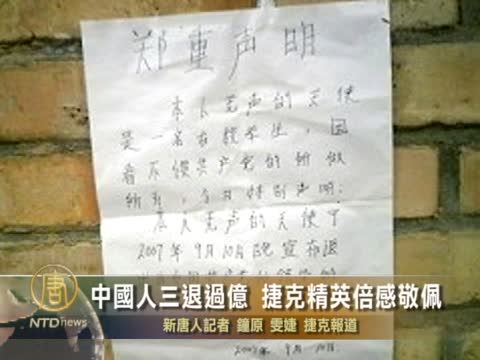 郑重声明
本人无声的天使
是一名在校学生，因
看不惯共产党的所做
所为，今日特别声明：
本人无声的天使于
2007年9月10日晚宣布退
2007年 9月 10日
唐
NTDnews
中國人三退過億 捷克精英倍感敬佩
新唐人記者 鐘原 雯婕 捷克報道